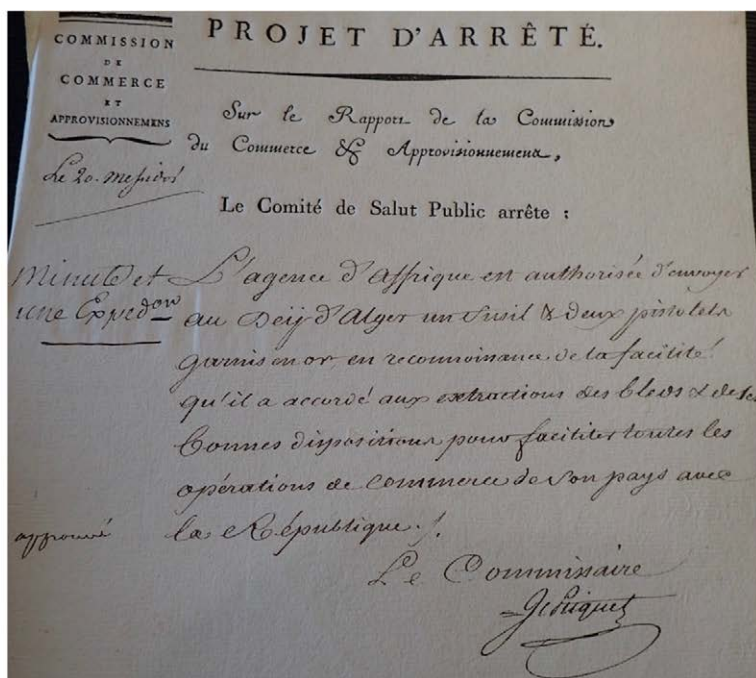 COMMISSION
DE
COMMERCE
ET
APPROVISIONNEMENS
Le 20. Messidor
PROJET D'ARRÊTÉ.
Sur le Rapport de la Commission
du Commerce & Approvisionnemens,
Le Comité de Salut Public arrête :
Minute et
une Expedon
L'agence d'Affrique en authorisée d'envoyer
au Deÿ d'Alger un fusil & deux pistolets
garnis en or, en reconnoinance de la facilité
qu'il a accordé aux extractions des bleds & de ses
bonnes dispositions pour faciliter toutes les
opérations de commerce de son pays avec
la République ./.
approuvé
Le Commissaire